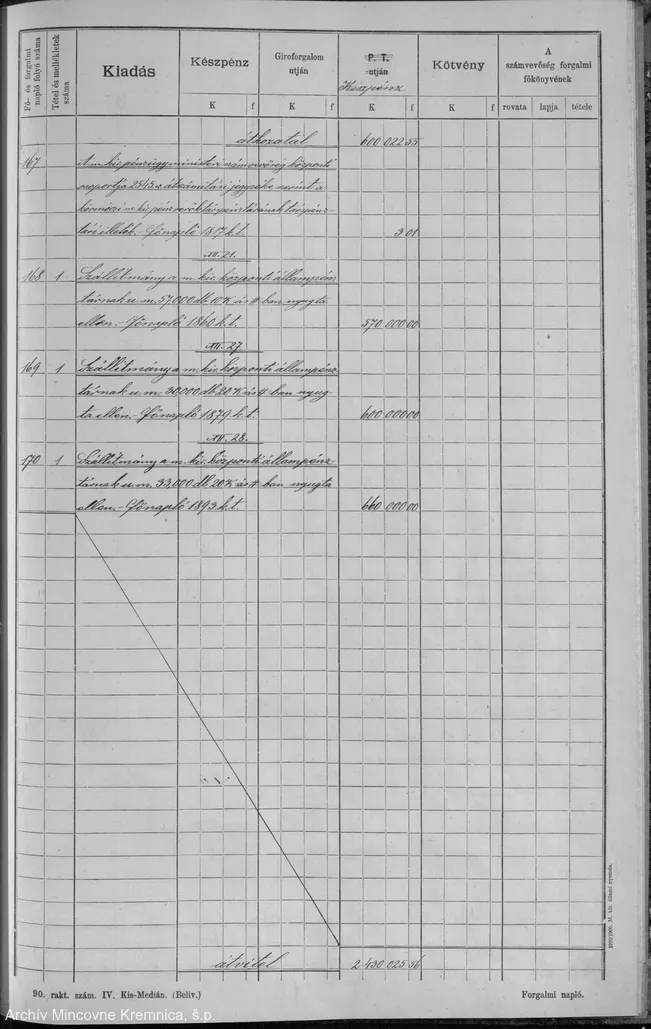 Fő- és forgalmi napló folyó száma
Tétel és mellékletek száma
Kiadás
Készpénz
Giroforgalom utján
P. T. utján
Készpénz
Kötvény
A számvevőség forgalmi főkönyvének
K f K f K f K f rovata lapja tétele
áthozatal 600 022 55
167 A m. kir. pénzügyministeri számvevőség központi
csoportja 2545 sz. átszámítási jegyzéke szerint a
körmöczi m. kir. pénzverők társpénztárának társpénz-
tári illetét. - Főnapló 1817 k. t. 3 01
XII. 21.
168 1 Szállitmány a m. kir. központi állampénz
tárnak u. m. 57,000 db 10 K ás # ban nyugta
ellen. - Főnapló 1860 k. t. 570 000 00
XII. 27
169 1 Szállitmány a m. kir. központi állampénz
tárnak u. m. 30,000 db 20 K ás # ban nyug
ta ellen. - Főnapló 1879 k. t. 600 000 00
XII. 28.
170 1 Szállitmány a m. kir. központi állampénz
tárnak u. m. 33,000 db 20 K ás # ban nyugta
ellen. - Főnapló 1893 k. t. 660 000 00
átvitel 2 430 025 56
90. rakt. szám. IV. Kis-Medián. (Beliv.)
Forgalmi napló.
M. kir. állami nyomda.
Archív Mincovne Kremnica, š.p.